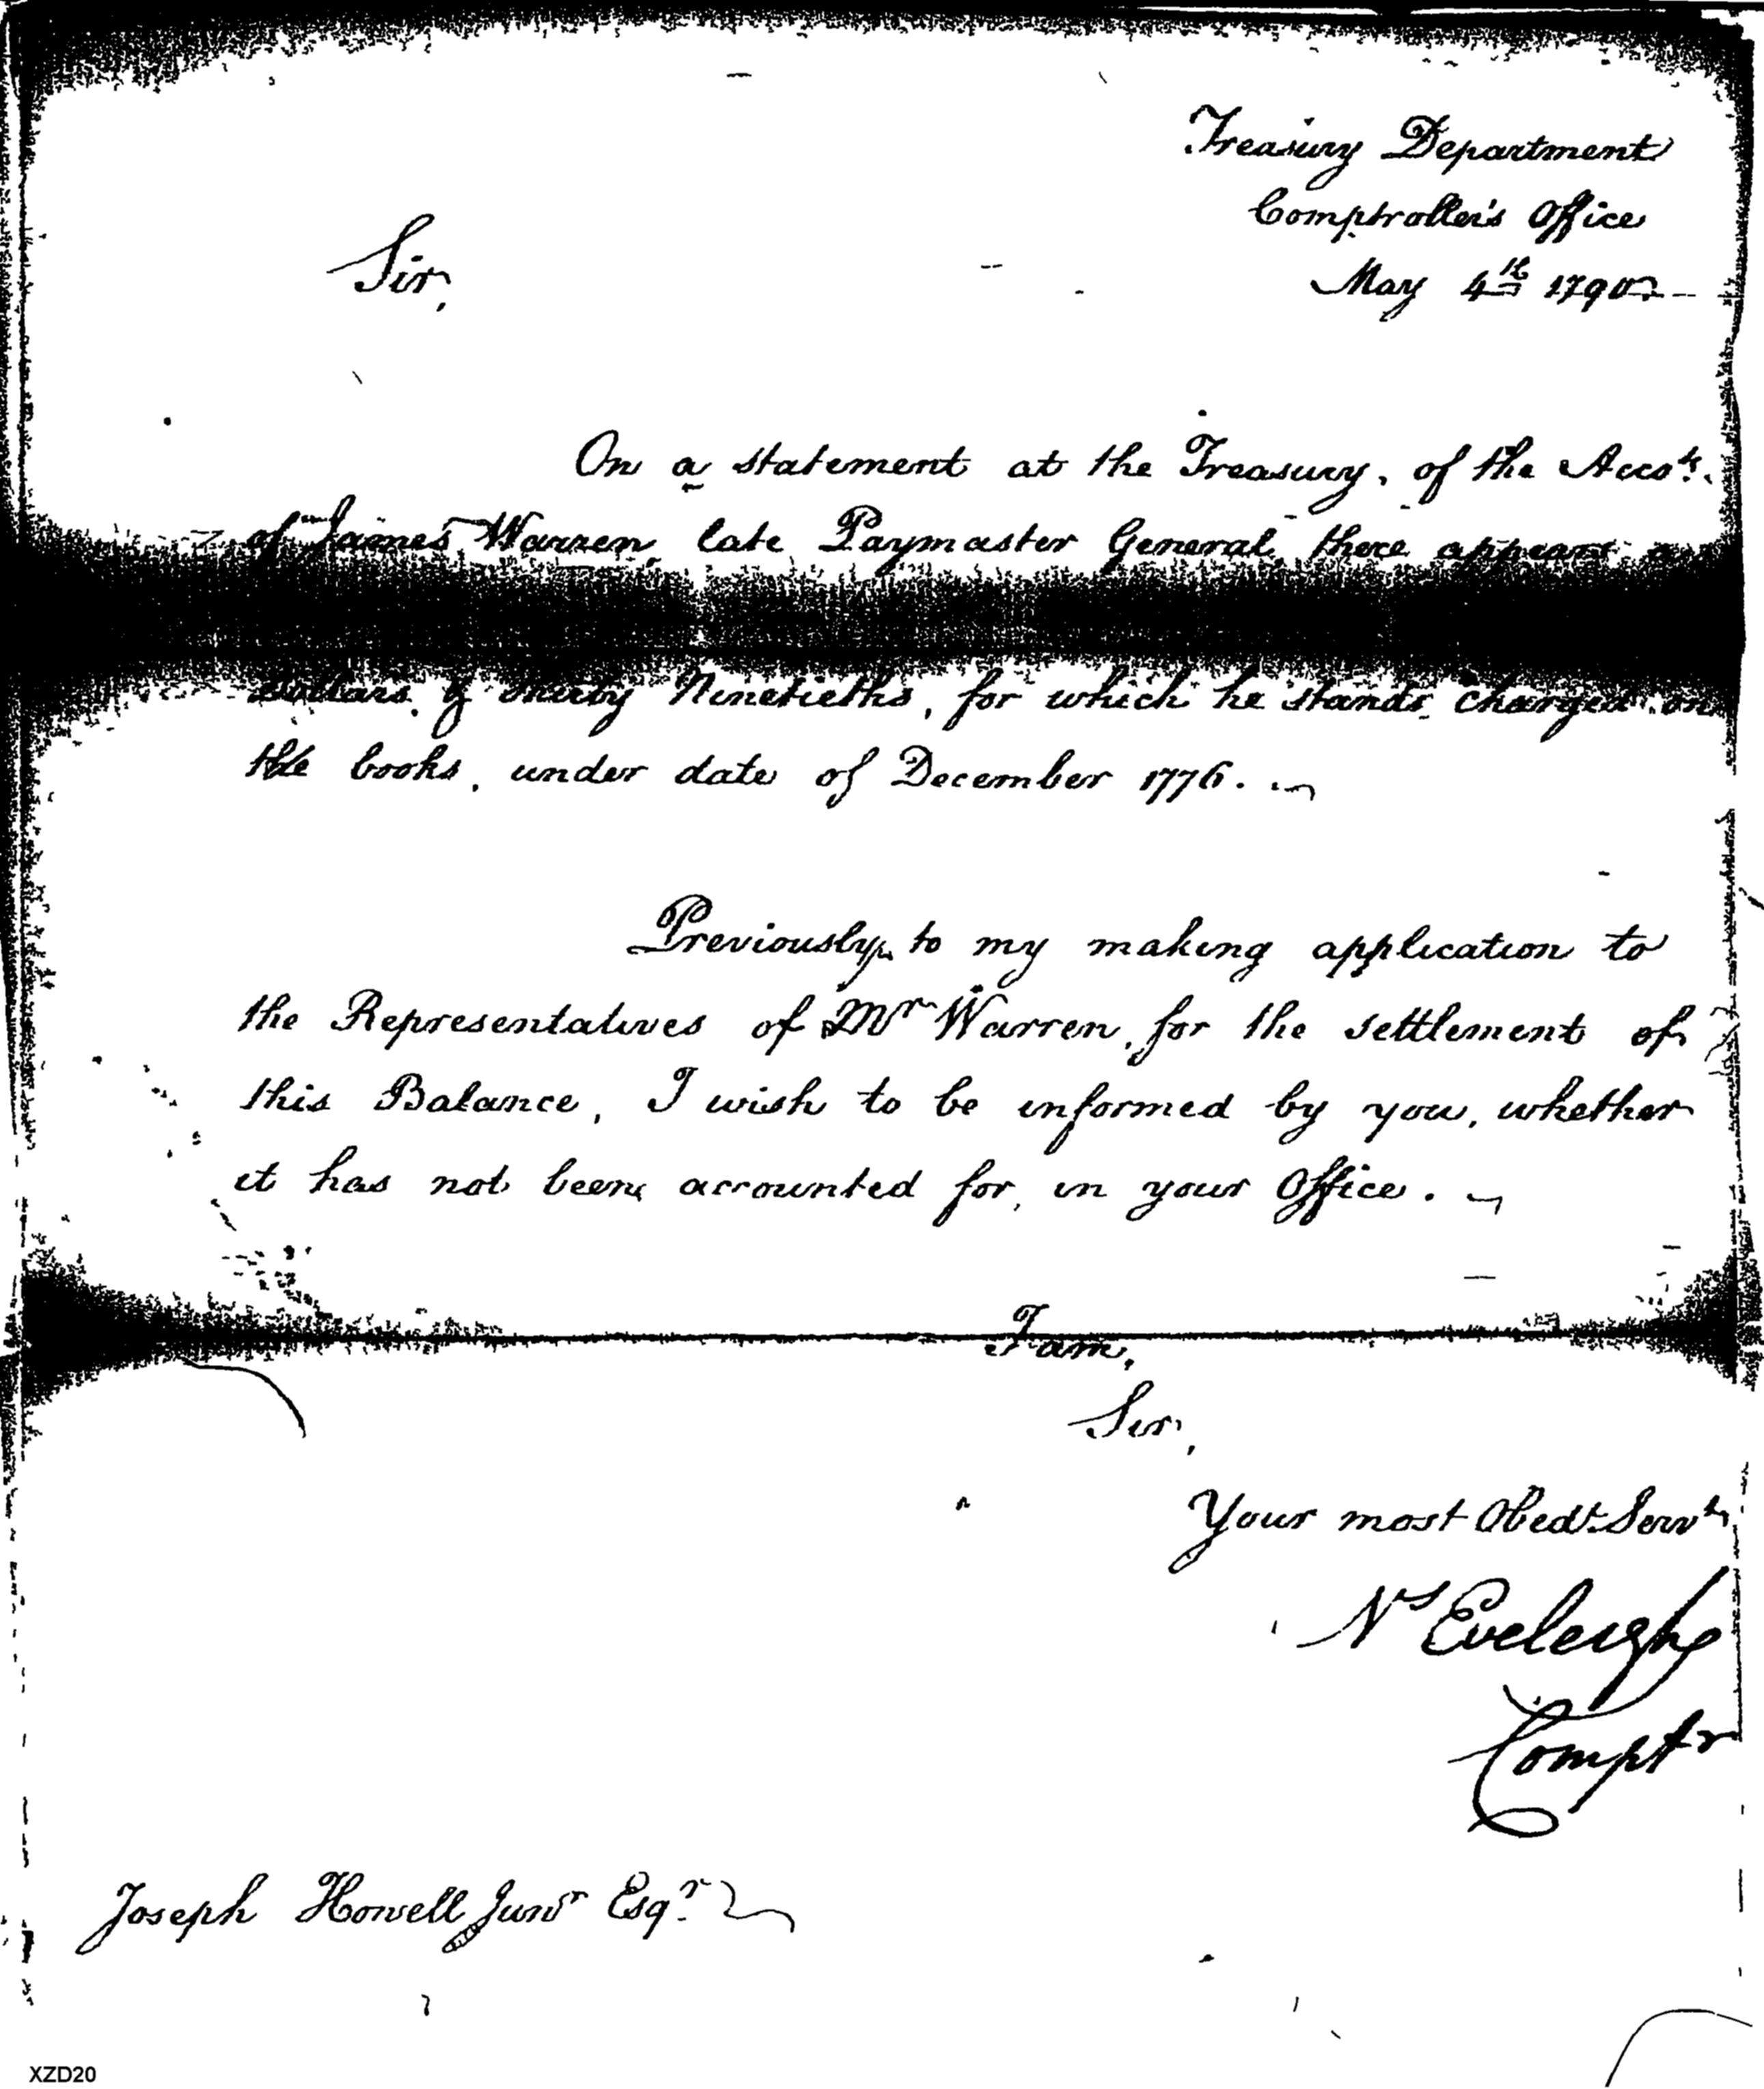 Treasury Department
Comptroller's Office
May 4th 1790
Sir,
On a statement at the Treasury, of the Accots.
of James Warren, late Paymaster General, there appears a
Dollars & thirty Ninetieths, for which he stands charged on
the books, under date of December 1776.
Previously to my making application to
the Representatives of Mr Warren, for the settlement of
this Balance, I wish to be informed by you, whether
it has not been accounted for, in your Office.
I am,
Sir,
Your most Obedt. Servt.
Ns Eveleigh
Comptr
Joseph Howell Junr Esqr.
XZD20